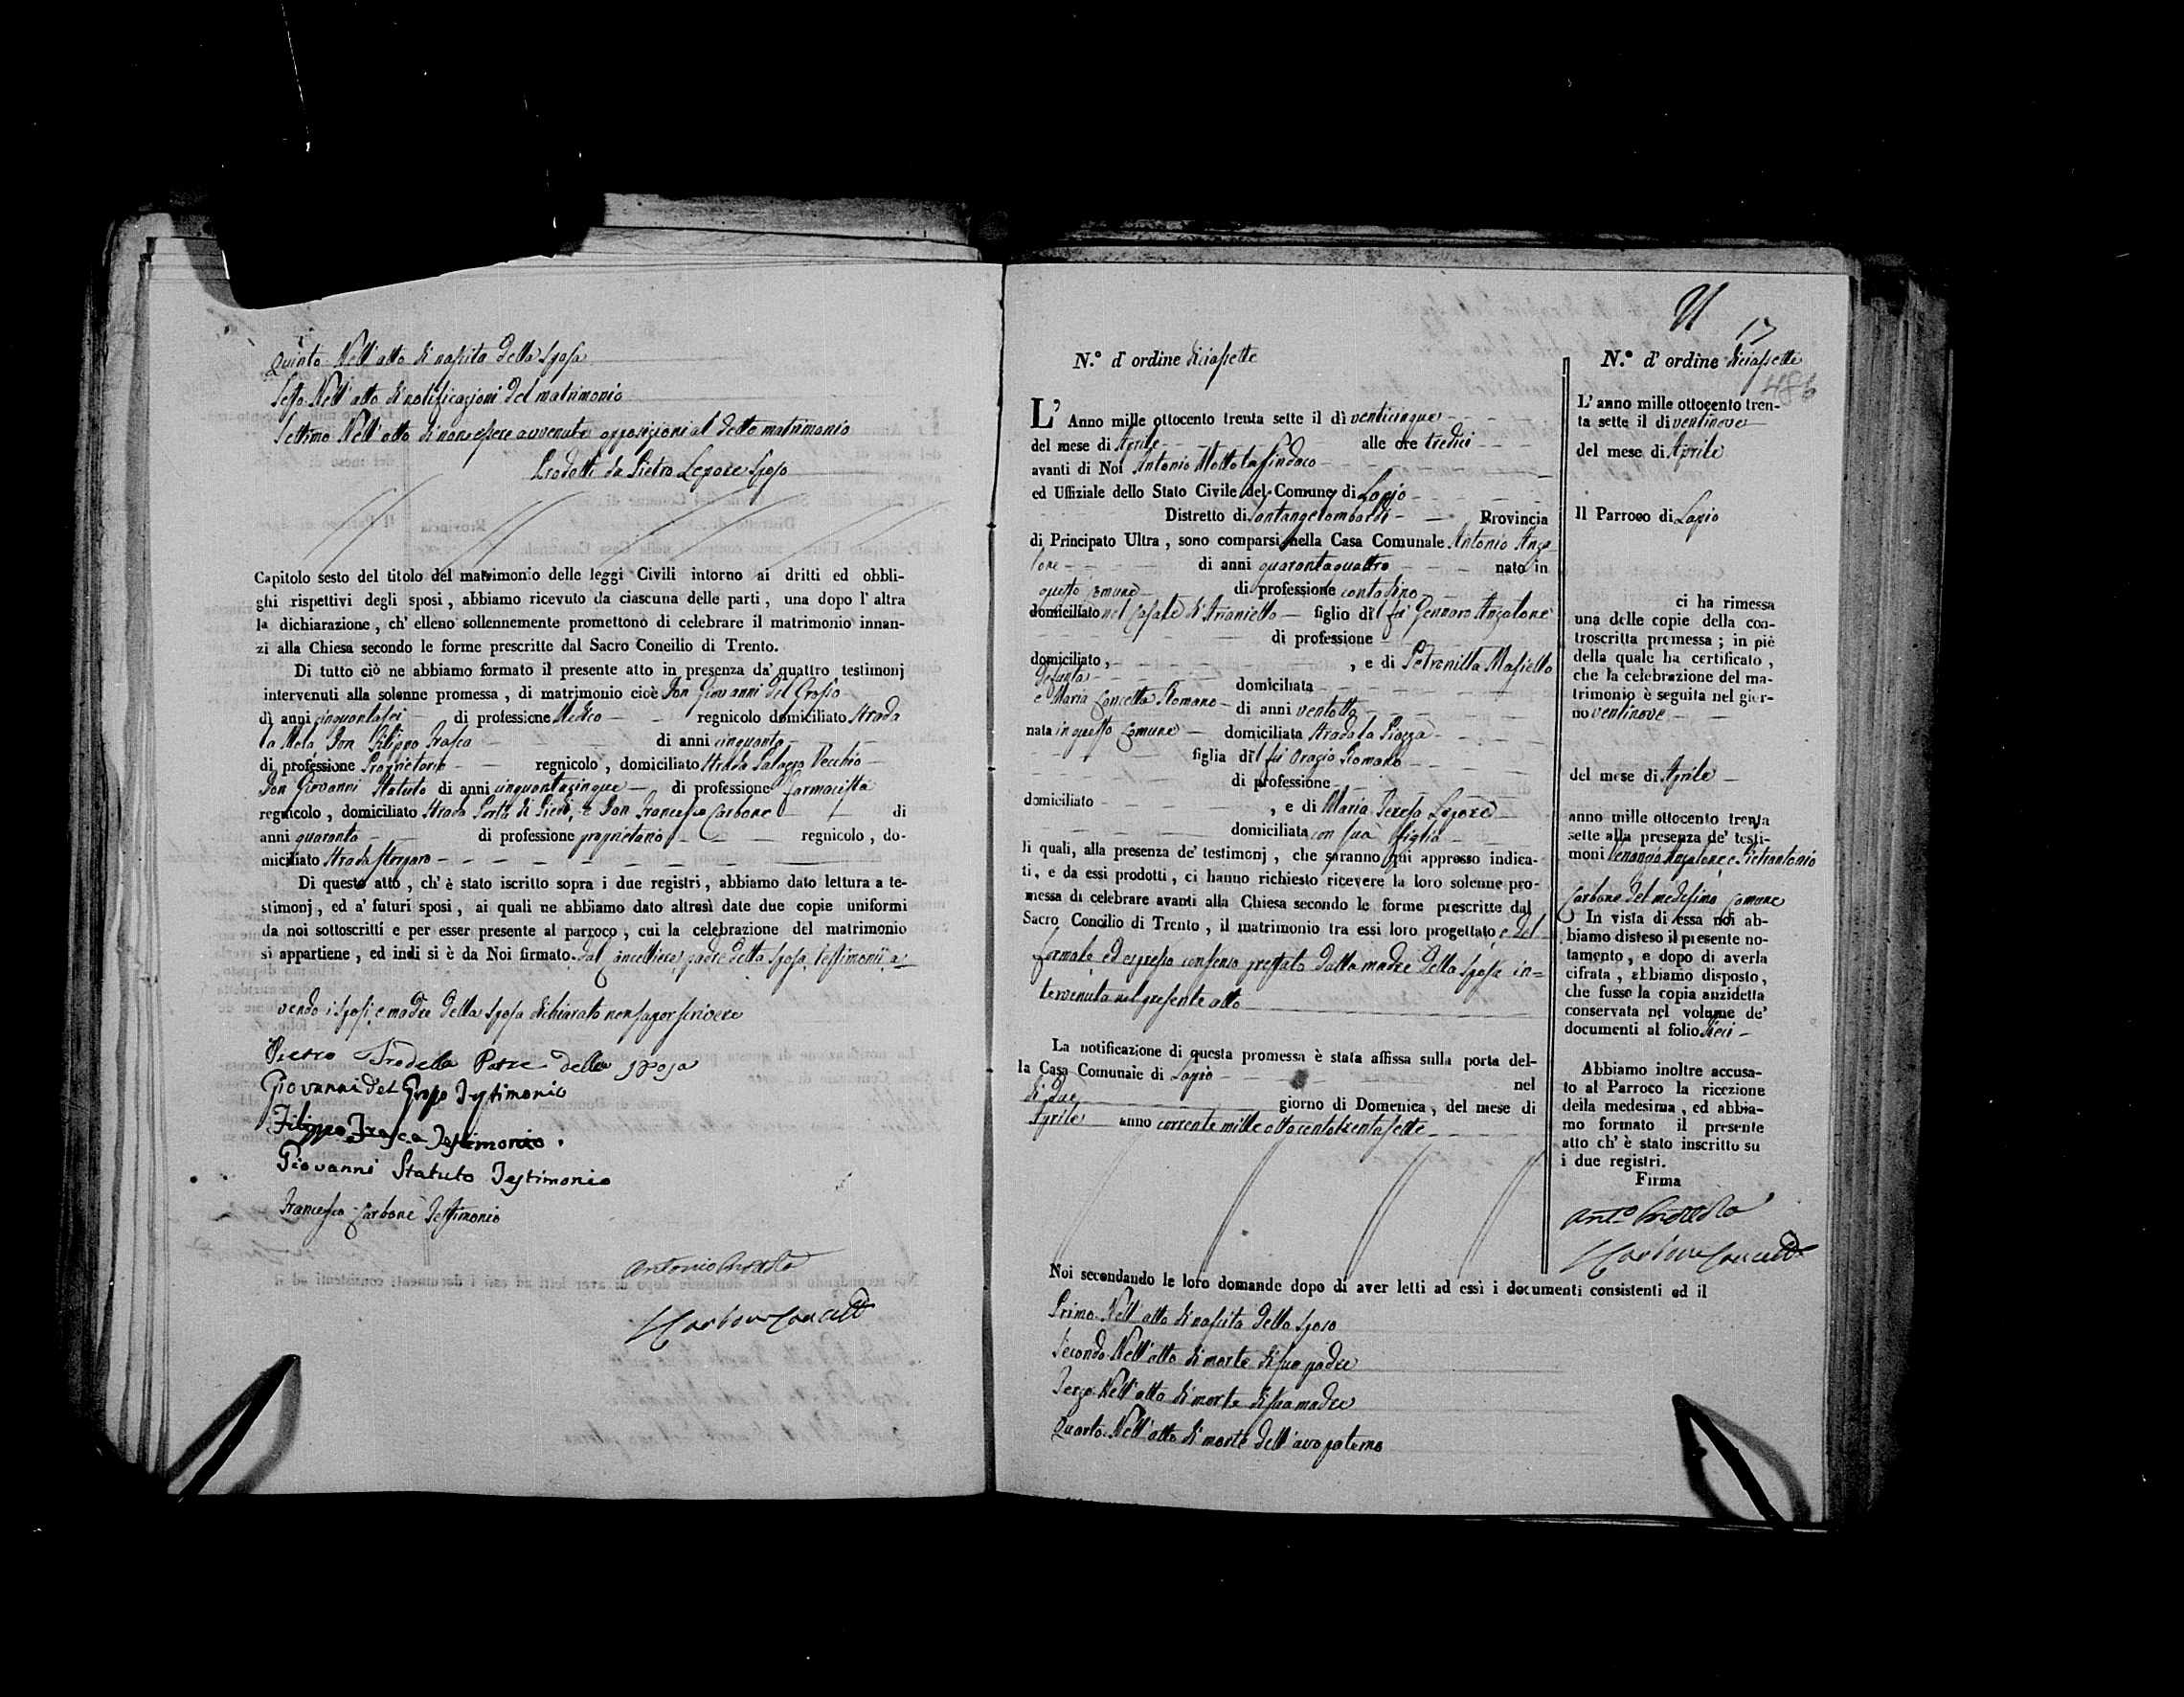 Quinto Nell'atto di nascita della Sposa
Sesto Nell'atto di notificazioni del matrimonio
Settimo Nell'atto di non essere avvenute opposizioni al detto matrimonio
Prodotti da Pietro Lepore Sposo
Capitolo sesto del titolo del matrimonio delle leggi Civili intorno ai dritti ed obbli-
ghi rispettivi degli sposi, abbiamo ricevuto da ciascuna delle parti, una dopo l'altra
la dichiarazione, ch'elleno sollennemente promettono di celebrare il matrimonio innan-
zi alla Chiesa secondo le forme prescritte dal Sacro Concilio di Trento.
Di tutto ciò ne abbiamo formato il presente atto in presenza da' quattro testimonj
intervenuti alla solenne promessa, di matrimonio cioè Don Giovanni del Grosso
di anni cinquantasei di professione Medico regnicolo domiciliato Strada
la Mela, Don Filippo Frasca di anni cinquanta
di professione Proprietario regnicolo, domiciliato Strada Palazzo Vecchio
Don Giovanni Statuto di anni cinquantacinque di professione farmacista
regnicolo, domiciliato Strada Porta di Piedi, e Don Francesco Carbone di
anni quaranta di professione proprietario regnicolo, do-
miciliato Strada
Di questo atto, ch'è stato iscritto sopra i due registri, abbiamo dato lettura a te-
stimonj, ed a' futuri sposi, ai quali ne abbiamo dato altresì date due copie uniformi
da noi sottoscritti e per esser presente al parroco, cui la celebrazione del matrimonio
si appartiene, ed indi si è da Noi firmato, dal Cancelliere, padre della Sposa, testimonii a-
vendo i sposi, e madre della Sposa dichiarato non saper scrivere
Pietro Patre della sposa
Giovanni Del Grosso Testimonio
Filippo Frasca Testimonio.
Giovanni Statuto Testimonio
Francesco Carbone Testimonio
Antonio Mottola
Carbone
17
N.º d'ordine diciassette
L'Anno mille ottocento trenta sette il dì venticinque
del mese di Aprile alle ore tredici
avanti di Noi Antonio Mottola Sindaco
ed Uffiziale dello Stato Civile del Comune di Lapio
Distretto di Santangelombardi Provincia
di Principato Ultra, sono comparsi nella Casa Comunale Antonio Anza
lone di anni quarantaquattro nato in
questo Comune di professione contadino
domiciliato nel Casale di Arianiello figlio di l fù Gennaro Anzalone
di professione
domiciliato, , e di Petronilla Masiello
defunta domiciliata
e Maria Concetta Romano di anni ventotto
nata in questo Comune domiciliata Strada la Piazza
figlia di l fù Orazio Romano
di professione
domiciliato , e di Maria Teresa Lepore
domiciliata con sua figlia
li quali, alla presenza de' testimonj, che saranno qui appresso indica-
ti, e da essi prodotti, ci hanno richiesto ricevere la loro solenne pro-
messa di celebrare avanti alla Chiesa secondo le forme prescritte dal
Sacro Concilio di Trento, il matrimonio tra essi loro progettato, e del
formale, ed espresso consenso prestato dalla madre della Sposa in=
tervenuta nel presente atto
La notificazione di questa promessa è stata affissa sulla porta del-
la Casa Comunale di Lapio nel
dì due giorno di Domenica, del mese di
Aprile anno corrente mille ottocento trentasette
Noi secondando le loro domande dopo di aver letti ad essi i documenti consistenti ed il
Primo Nell'atto di nascita dello Sposo
Secondo Nell'atto di morte di suo padre
Terzo Nell'atto di morte di sua madre
Quarto Nell'atto di morte dell'avo paterno
N.º d'ordine diciassette
486
L'anno mille ottocento tren-
ta sette il dì ventinove
del mese di Aprile
Il Parroco di Lapio
ci ha rimessa
una delle copie della con-
troscritta promessa; in piè
della quale ha certificato,
che la celebrazione del ma-
trimonio è seguita nel gior-
no ventinove
del mese di Aprile
anno mille ottocento trenta
sette alla presenza de' testi-
moni Venanzio Anzalone, e Pietrantonio
Carbone del medesimo Comune
In vista di essa noi ab-
biamo disteso il presente no-
tamento, e dopo di averla
cifrata, abbiamo disposto,
che fusse la copia anzidetta
conservata nel volume de'
documenti al folio dieci
Abbiamo inoltre accusa-
to al Parroco la ricezione
della medesima, ed abbia-
mo formato il presente
atto ch'è stato inscritto su
i due registri.
Firma
Ant.º Mottola
Carbone